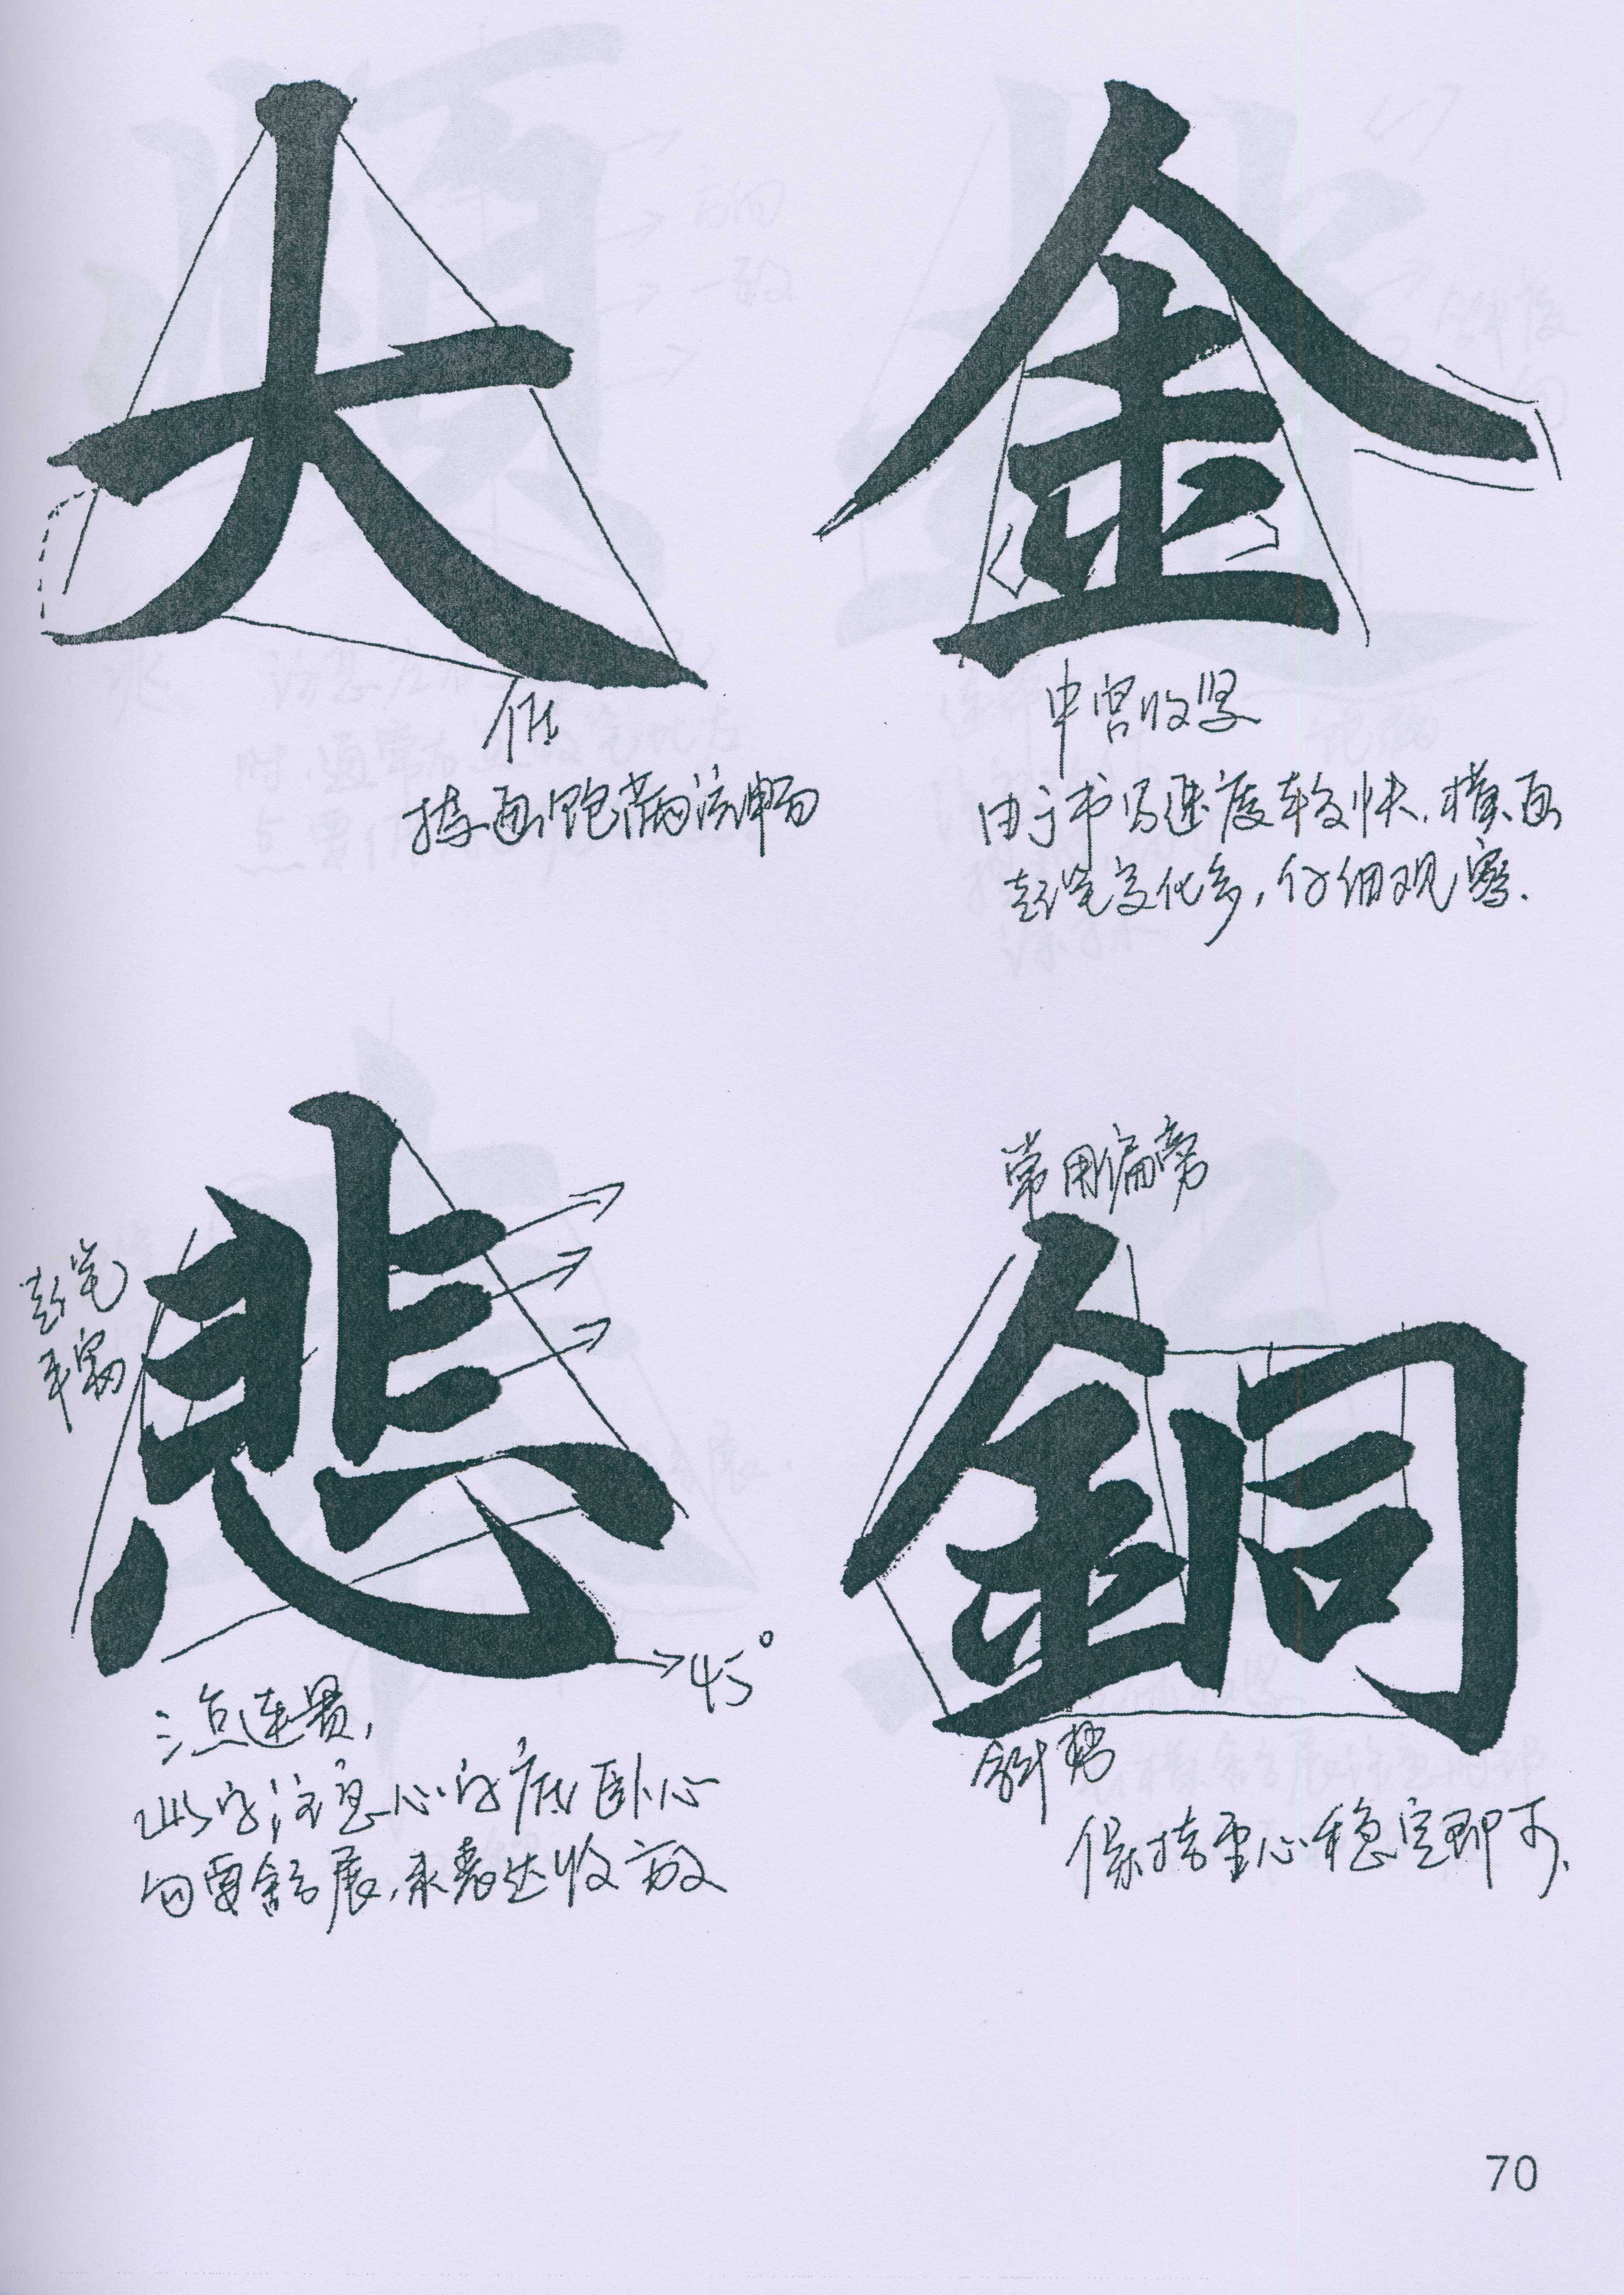 大
低
捺画饱满流畅
金
中宫收紧
由于书写速度较快.横画
起笔变化多,仔细观察.
悲
起笔
丰富
45°
三点连贯,
此字注意心字底卧心
勾要舒展,来表达收放
常用偏旁
銅
斜势
保持重心稳定即可.
70